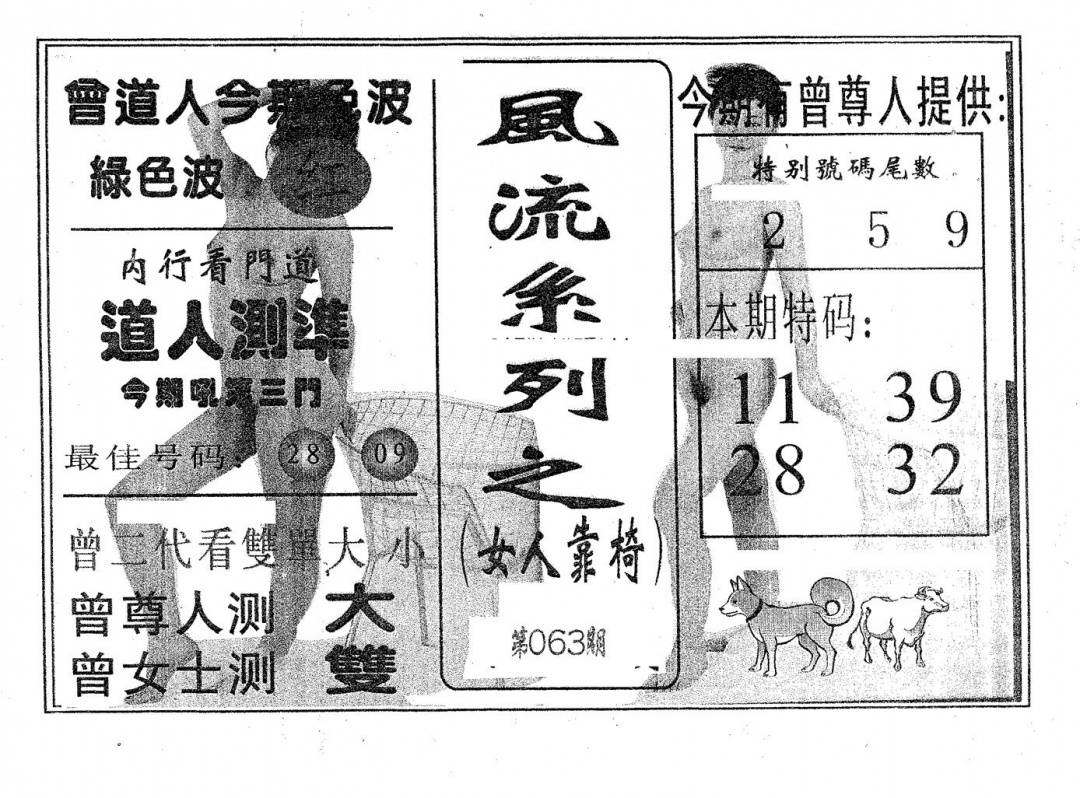 曾道人今期色波
綠色波
紅
内行看門道
道人測準
今期吼實三門
最佳号码:
28
09
曾二代看雙單大小
曾尊人测
大
曾女士测
雙
風流系列之
(女人靠椅)
第063期
今期有曾尊人提供:
特别號碼尾數
2 5 9
本期特码:
11 39
28 32